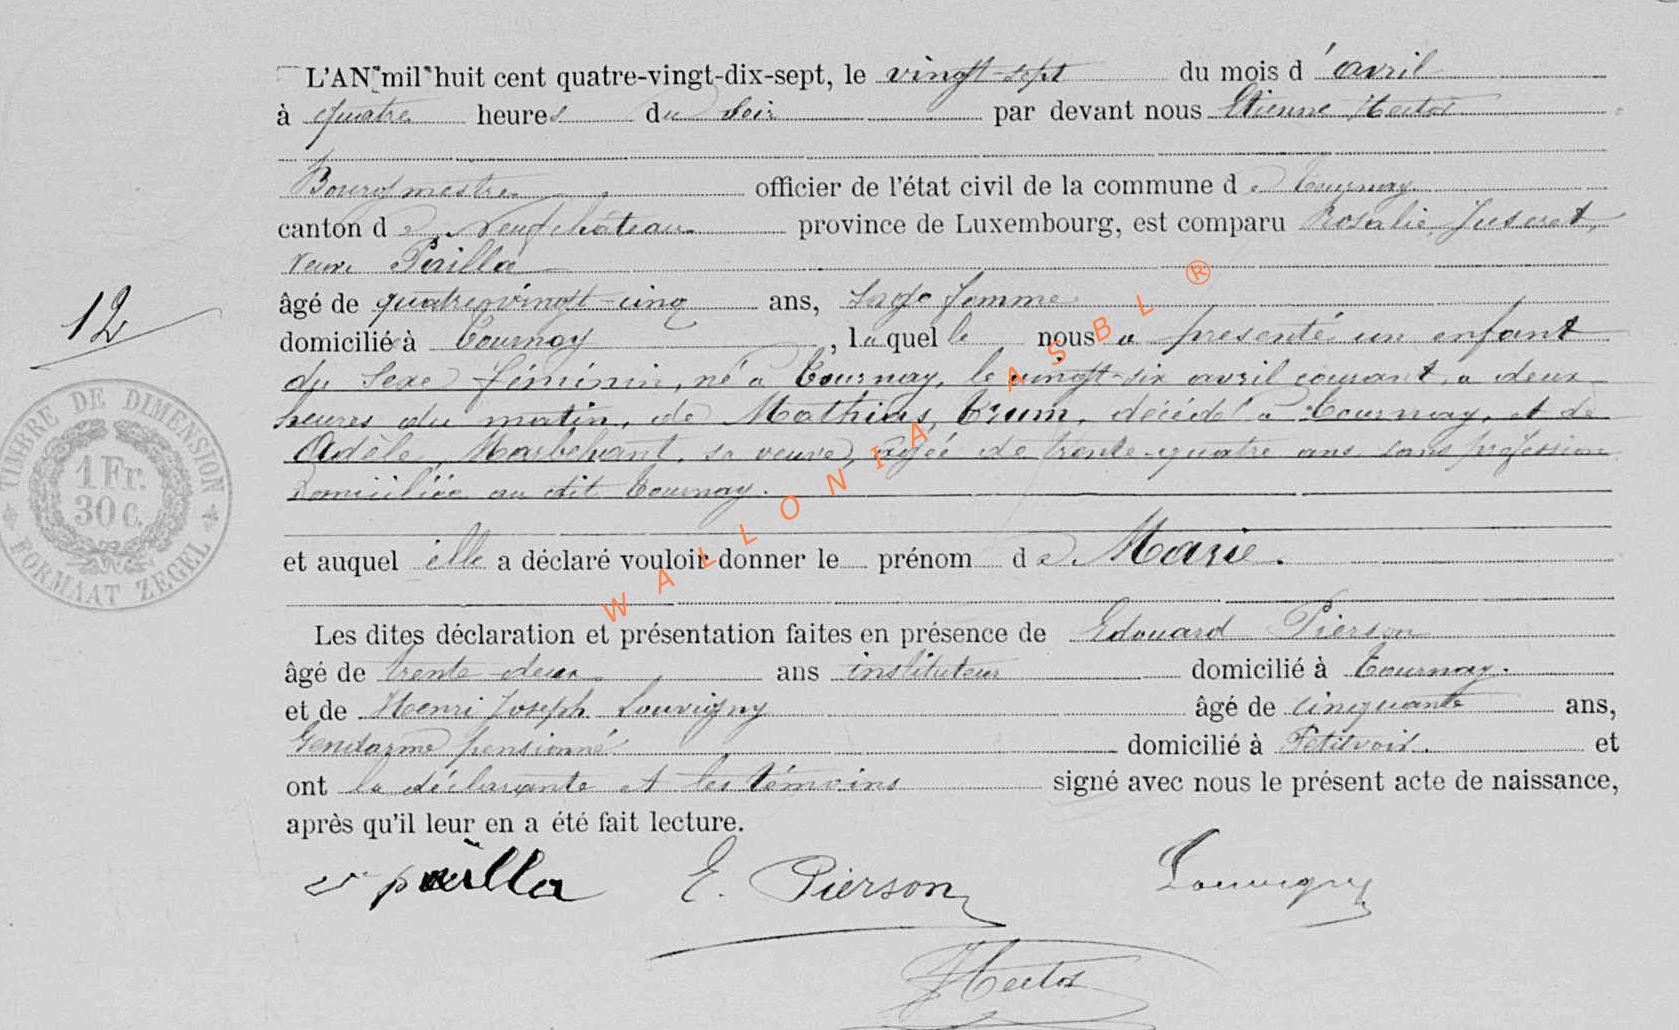 L'AN mil huit cent quatre-vingt-dix-sept, le vingt-sept du mois d'avril
à quatre heures du soir par devant nous Etienne Hertos
Bourgmestre officier de l'état civil de la commune de Tournay
canton de Neufchâteau province de Luxembourg, est comparu Rosalie Juseret,
veuve Pailla
âgé de quatrevingt-cinq ans, sage femme
12
domicilié à Tournay, laquelle nous a présenté un enfant
du sexe féminin, né à Tournay, le vingt-six avril courant, à deux
heures du matin, de Mathias Crum, décédé à Tournay, et de
Adèle Marbehant, sa veuve, agée de trente-quatre ans sans profession
domiciliée au dit Tournay.
TIMBRE DE DIMENSION
1 Fr.
30 C.
FORMAAT ZEGEL
et auquel elle a déclaré vouloir donner le prénom de Marie.
Les dites déclaration et présentation faites en présence de Edouard Pierson
âgé de trente-deux ans instituteur domicilié à Tournay.
et de Henri Joseph Louvigny âgé de cinquante ans,
Gendarme pensionné domicilié à Petitvoir. et
ont la déclarante et les témoins signé avec nous le présent acte de naissance,
après qu'il leur en a été fait lecture.
ve pailla E. Pierson Louvigny
WALLONIA ASBL ®